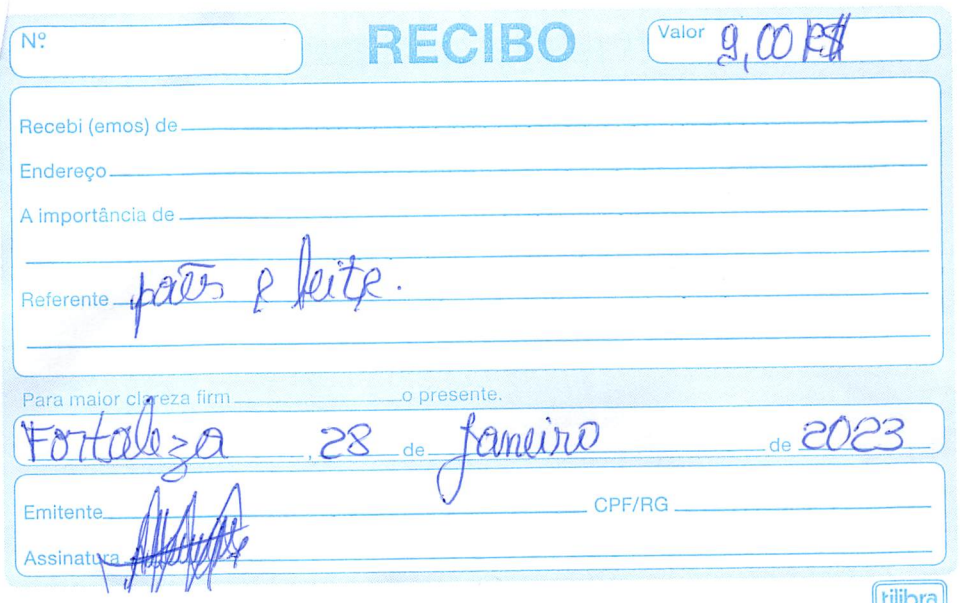 Nº RECIBO Valor 9,00 R$
Recebi (emos) de
Endereço
A importância de
Referente pães e leite.
Para maior clareza firm o presente.
Fortaleza, 28 de Janeiro de 2023
Emitente CPF/RG
Assinatura
tilibra